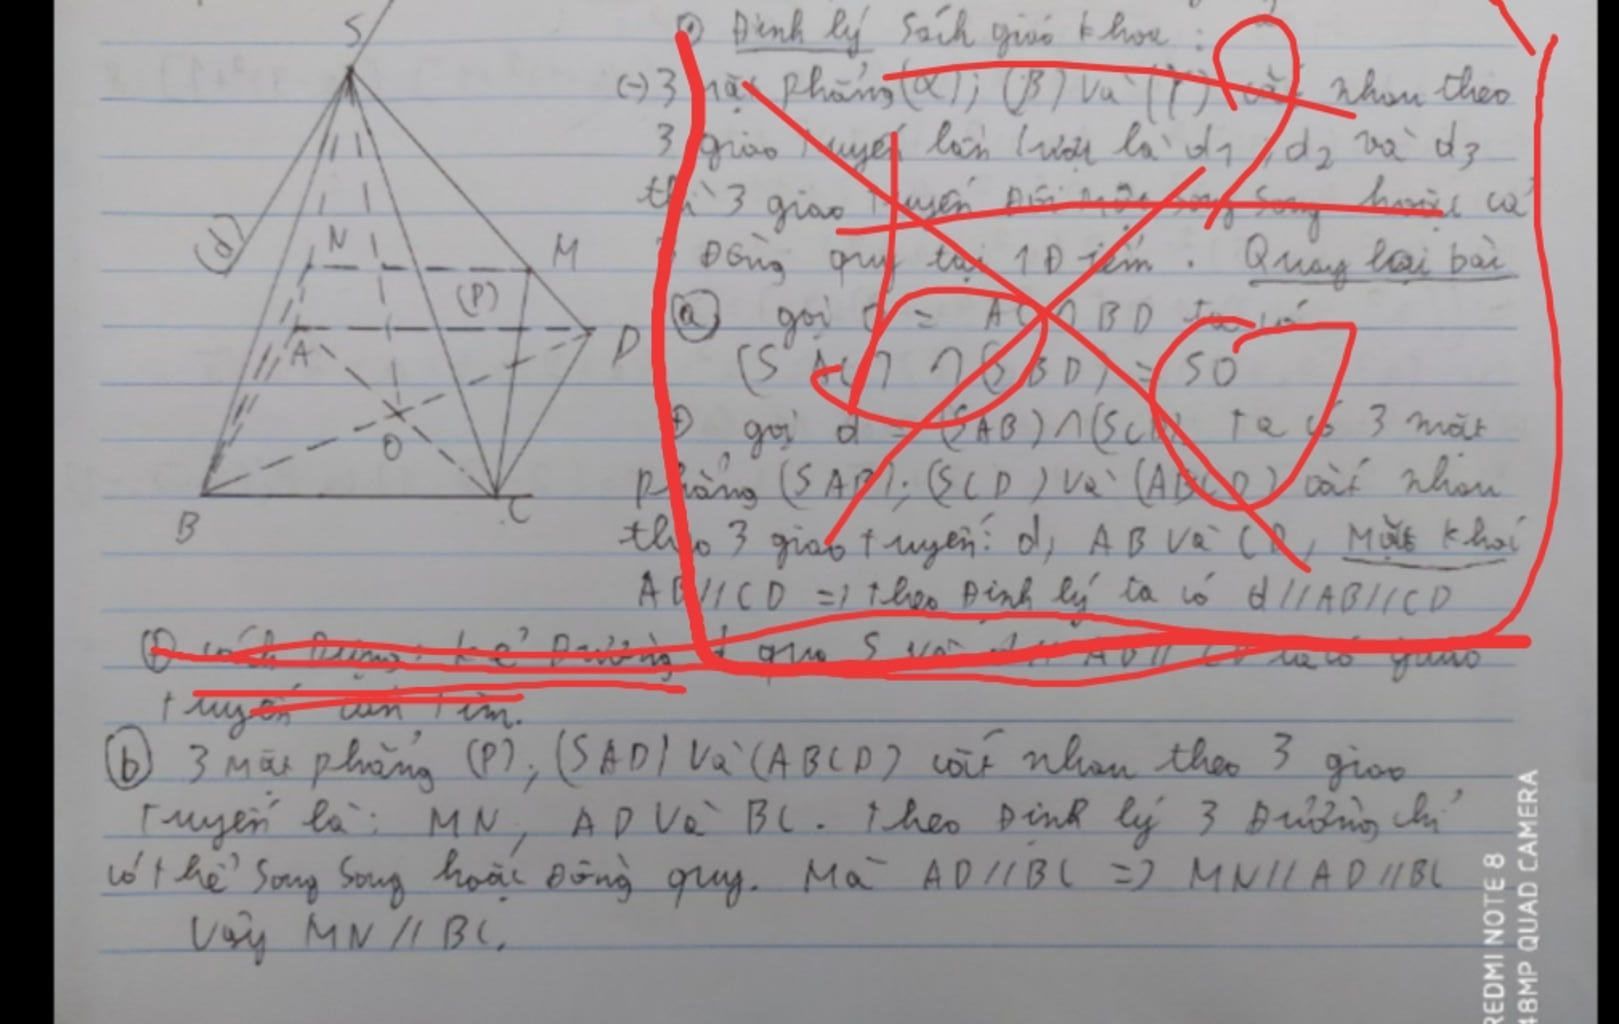 S
(d)
N
M
(P)
A
D
O
B
C
Định lý Sách giáo khoa :
(-) 3 mặt phẳng (α); (β) và (γ) cắt nhau theo
3 giao tuyến lần lượt là d1, d2 và d3
thì 3 giao tuyến Đôi một song song hoặc cả
3 Đồng quy tại 1 Điểm. Quay lại bài
(a) gọi O = AC ∩ BD ta có
(SAC) ∩ (SBD) = SO
+) gọi d = (SAB) ∩ (SCD) ta có 3 mặt
phẳng (SAB); (SCD) và (ABCD) cắt nhau
theo 3 giao tuyến: d, AB và CD, Mặt khác
AB // CD => theo Định lý ta có d // AB // CD
cách Dựng: kẻ Đường d qua S và d // AB // CD ta có giao
tuyến cần tìm.
(b) 3 mặt phẳng (P), (SAD) và (ABCD) cắt nhau theo 3 giao
tuyến là: MN, AD và BC. theo Định lý 3 Đường chỉ
có thể song song hoặc Đồng quy. Mà AD // BC => MN // AD // BC
Vậy MN // BC.
REDMI NOTE 8
48MP QUAD CAMERA